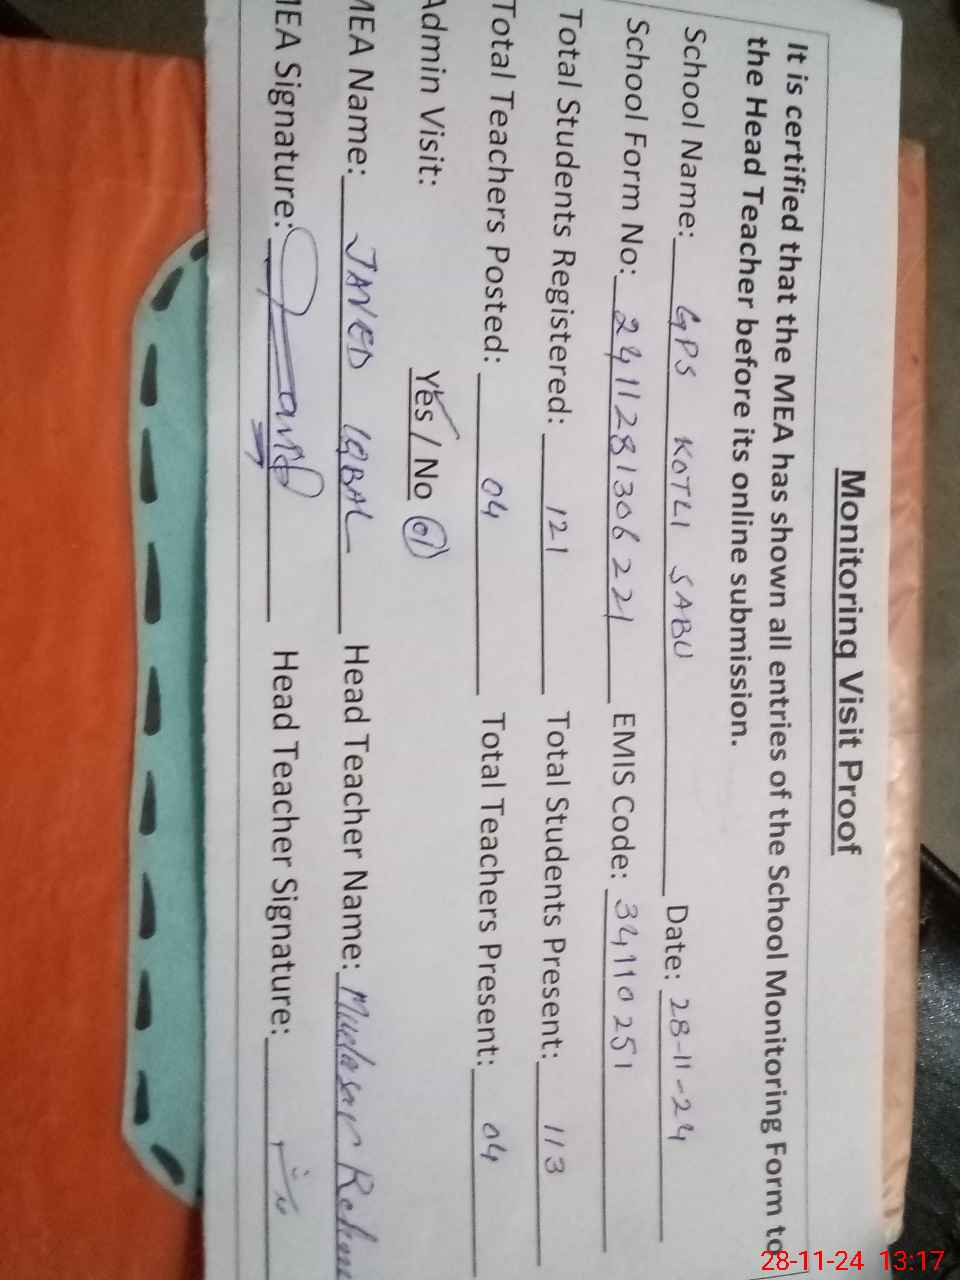 Monitoring Visit Proof
It is certified that the MEA has shown all entries of the School Monitoring Form to
the Head Teacher before its online submission.
School Name: GPS KOTLI SABU Date: 28-11-24
School Form No: 2411281306221 EMIS Code: 34110251
Total Students Registered: 121 Total Students Present: 113
Total Teachers Posted: 04 Total Teachers Present: 04
Admin Visit: Yes / No 01
MEA Name: JAVED IQBAL Head Teacher Name: Mudasar
MEA Signature: Head Teacher Signature:
28-11-24 13:17